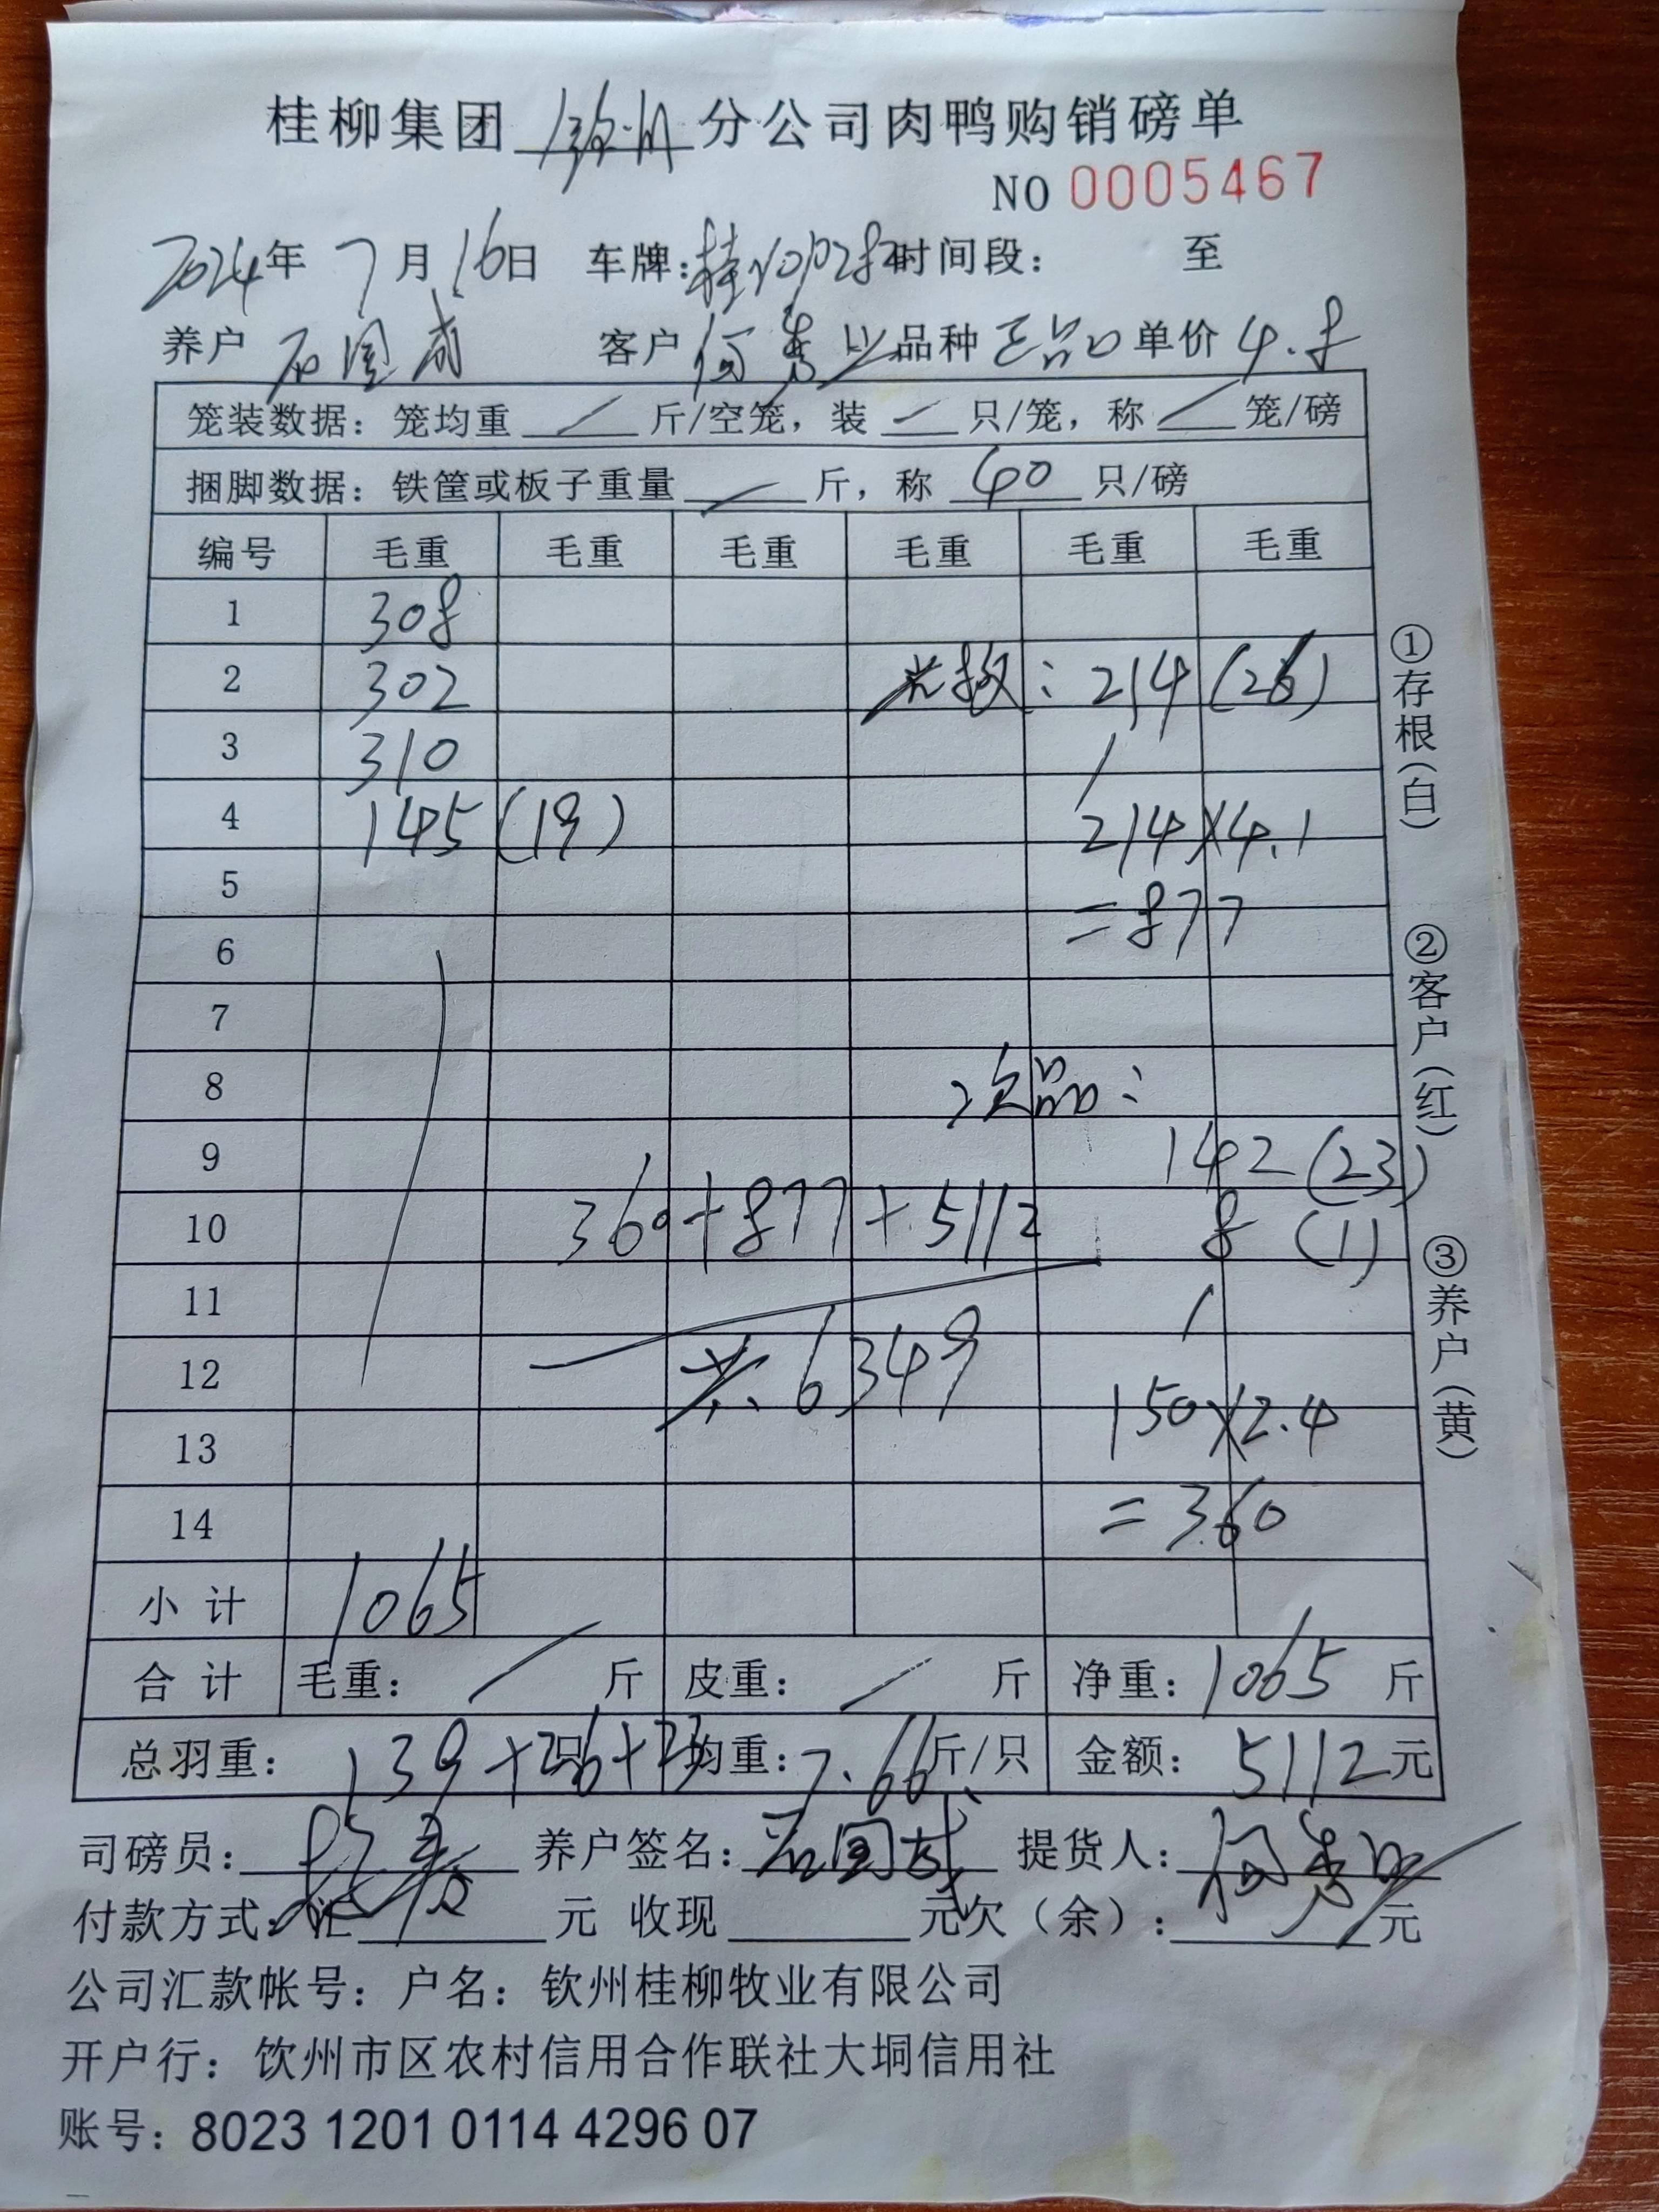 桂柳集团 钦州 分公司肉鸭购销磅单
NO 0005467
2024年 7月 16日 车牌: 时间段: 至
养户 石国成 客户 何秀 品种 正品 单价 4.8
笼装数据: 笼均重 / 斤/空笼, 装 / 只/笼, 称 / 笼/磅
捆脚数据: 铁筐或板子重量 / 斤, 称 40 只/磅
编号 毛重 毛重 毛重 毛重 毛重 毛重
1 308
2 302 光板: 214 (26)
3 310
4 145 (19) 214×4.1
5 =877
6
7
8 次品:
9 142 (23)
10 360+877+5112 8 (1)
11
12 共 6349
13 150×2.4
14 =360
小计 1065
合计 毛重: / 斤 皮重: / 斤 净重: 1065 斤
总羽重: 139+26+23 只 均重: 7.66 斤/只 金额: 5112 元
司磅员: 养户签名: 石国成 提货人: 何秀
付款方式: 汇 元 收现 元欠(余): 元
公司汇款帐号: 户名: 钦州桂柳牧业有限公司
开户行: 饮州市区农村信用合作联社大垌信用社
账号: 8023 1201 0114 4296 07
①存根(白)
②客户(红)
③养户(黄)